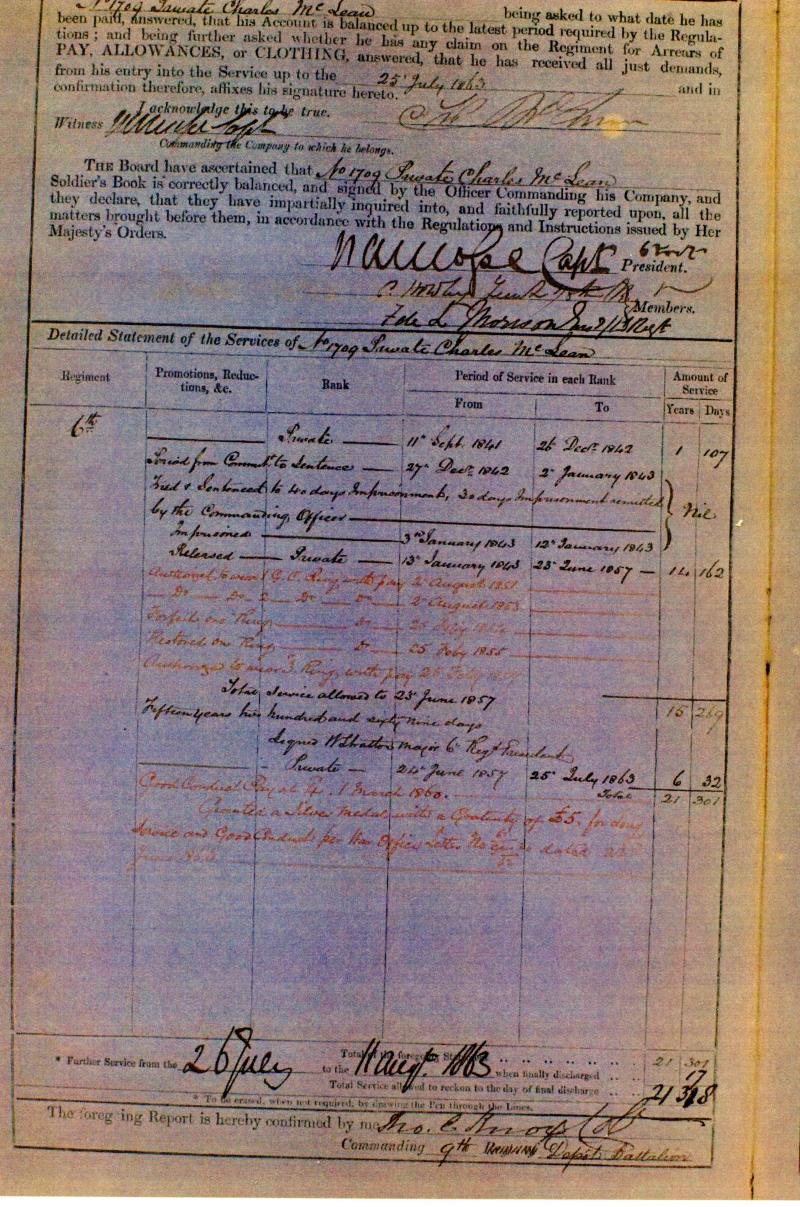 No 1709 Private Charles Mc Lean being asked to what date he has
been paid, answered, that his Account is balanced up to the latest period required by the Regula-
tions; and being further asked whether he has any claim on the Regiment for Arrears of
PAY, ALLOWANCES, or CLOTHING, answered, that he has received all just demands,
from his entry into the Service up to the 25 July 1863 and in
confirmation therefore, affixes his signature hereto.
I acknowledge this to be true.
Witness Capt
Commanding the Company to which he belongs.
THE Board have ascertained that No 1709 Private Charles Mc Lean
Soldier's Book is correctly balanced, and signed by the Officer Commanding his Company, and
they declare, that they have impartially inquired into, and faithfully reported upon, all the
matters brought before them, in accordance with the Regulations and Instructions issued by Her
Majesty's Orders.
Capt President.
Members.
Detailed Statement of the Services of No 1709 Private Charles Mc Lean
Regiment Promotions, Reduc-tions, &c. Rank Period of Service in each Rank Amount of Service
From To Years Days
6th
Private 11th Sept. 1841 26 Decr. 1842 1 107
Period from Commt. to Sentence 27th Decr. 1842 2d January 1843
Tried & Sentenced to 40 days Imprisonment, 30 days Imprisonment remitted
by the Commanding Officer Nil
Imprisoned 3rd January 1843 12th January 1843
Released Private 13th January 1843 23rd June 1857 14 162
G.C. Ring with pay 2d August 1851
Do Do 2 Do Do 2d August 1853
Forfeits one Ring Do
Restored one Ring Do 25 Feby 1855
Authorized to wear 3 Ring with pay
Total Service allowed to 23rd June 1857 15 269
Fifteen years two hundred and sixty nine days
Signed Major 6th Regt President
Private 24th June 1857 25th July 1863 6 32
Good Conduct Pay at 4d. 1 March 1860. Total 21 301
Granted a Silver medal with a Gratuity of £5. for long
Service and Good Conduct per War Office Letter No dated
Total of the foregoing 21 301
* Further Service from the 26 July to the 11 Augt. 1863 when finally discharged 17
Total Service allowed to reckon to the day of final discharge 21 318
* To be erased, when not required, by drawing the Pen through the Lines.
The foregoing Report is hereby confirmed by me
Commanding 9th Depot Battalion